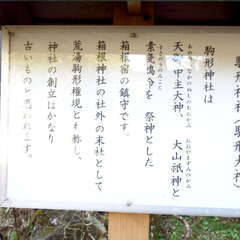 駒形神社は
天御中主大神、大山祇神と
素戔嗚尊を祭神とした
箱根宿の鎮守です。
箱根神社の社外の末社として
荒湯駒形権現とも称し、
神社の創立はかなり
古いものと思われます。